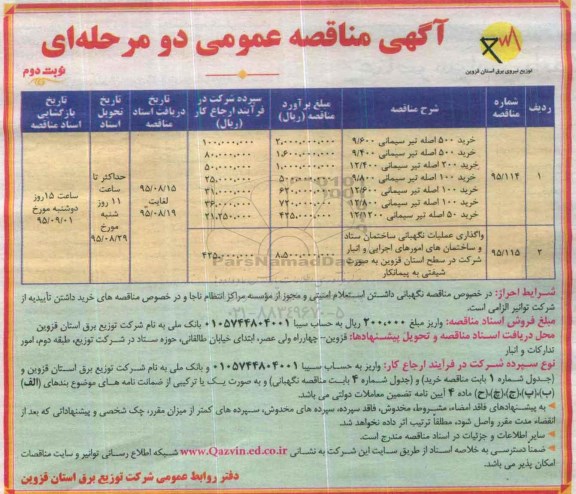 آگهی مناقصه عمومی دو مرحله‌ای
نوبت دوم
توزیع نیروی برق استان قزوین
ردیف
شماره مناقصه
شرح مناقصه
مبلغ برآورد مناقصه (ریال)
سپرده شرکت در فرآیند ارجاع کار (ریال)
تاریخ دریافت اسناد مناقصه
تاریخ تحویل اسناد
تاریخ بازگشایی اسناد مناقصه
۱
۹۵/۱۱۴
خرید ۵۰۰ اصله تیر سیمانی ۹/۶۰۰
۲.۰۰۰.۰۰۰.۰۰۰
۱۰۰.۰۰۰.۰۰۰
خرید ۵۰۰ اصله تیر سیمانی ۹/۴۰۰
۱.۶۰۰.۰۰۰.۰۰۰
۸۰.۰۰۰.۰۰۰
خرید ۲۰۰ اصله تیر سیمانی ۱۲/۴۰۰
۱.۰۰۰.۰۰۰.۰۰۰
۵۰.۰۰۰.۰۰۰
خرید ۱۰۰ اصله تیر سیمانی ۹/۸۰۰
۵۰۰.۰۰۰.۰۰۰
۲۵.۰۰۰.۰۰۰
خرید ۱۰۰ اصله تیر سیمانی ۱۲/۶۰۰
۶۲۰.۰۰۰.۰۰۰
۳۱.۰۰۰.۰۰۰
خرید ۱۰۰ اصله تیر سیمانی ۱۲/۸۰۰
۷۲۰.۰۰۰.۰۰۰
۳۶.۰۰۰.۰۰۰
خرید ۵۰ اصله تیر سیمانی ۱۲/۱۲۰۰
۴۲۵.۰۰۰.۰۰۰
۲۱.۲۵۰.۰۰۰
۹۵/۰۸/۱۵
لغایت
۹۵/۰۸/۱۹
حداکثر تا
ساعت
۱۱ روز
شنبه
مورخ
۹۵/۰۸/۲۹
ساعت ۱۵ روز
دوشنبه مورخ
۹۵/۰۹/۰۱
۲
۹۵/۱۱۵
واگذاری عملیات نگهبانی ساختمان ستاد
و ساختمان های امورهای اجرایی و انبار
شرکت در سطح استان قزوین به صورت
شیفتی به پیمانکار
۸.۵۰۰.۰۰۰.۰۰۰
۴۲۵.۰۰۰.۰۰۰
ParsNamadData
۰۲۱-۸۸۳۴۹۶۷۰-۵
شرایط احراز: در خصوص مناقصه نگهبانی داشتن استعلام امنیتی و مجوز از مؤسسه مراکز انتظام ناجا و در خصوص مناقصه های خرید داشتن تأییدیه از
شرکت توانیر الزامی است.
مبلغ فروش اسناد مناقصه: واریز مبلغ ۲۰۰.۰۰۰ ریال به حساب سیبا ۰۱۰۵۷۴۴۸۰۴۰۰۱ بانک ملی به نام شرکت توزیع برق استان قزوین
محل دریافت اسناد مناقصه و تحویل پیشنهادها: قزوین- چهارراه ولی عصر، ابتدای خیابان طالقانی، حوزه ستاد در شرکت توزیع، طبقه دوم، امور
تدارکات و انبار
نوع سپرده شرکت در فرآیند ارجاع کار: واریز به حساب سیبا ۰۱۰۵۷۴۴۸۰۴۰۰۱ و بانک ملی به نام شرکت توزیع برق استان قزوین و
(جدول شماره ۱ بابت مناقصه خرید) و (جدول شماره ۴ بابت مناقصه نگهبانی) و به صورت یک یا ترکیبی از ضمانت نامه های موضوع بندهای (الف)
(ب)،(پ)،(ج)،(چ)،(ح) ماده ۴ آیین نامه تضمین معاملات دولتی می باشد.
به پیشنهادهای فاقد امضاء، مشروط، مخدوش، فاقد سپرده، سپرده های مخدوش، سپرده های کمتر از میزان مقرر، چک شخصی و پیشنهاداتی که بعد از
انقضاء مدت مقرر واصل شود، مطلقاً ترتیب اثر داده نخواهد شد.
سایر اطلاعات و جزئیات در اسناد مناقصه مندرج است.
ضمناً دسترسی به خلاصه اسناد از طریق سایت این شرکت به نشانی www.Qazvin.ed.co.ir شبکه اطلاع رسانی توانیر و سایت مناقصات
امکان پذیر می باشد.
دفتر روابط عمومی شرکت توزیع برق استان قزوین